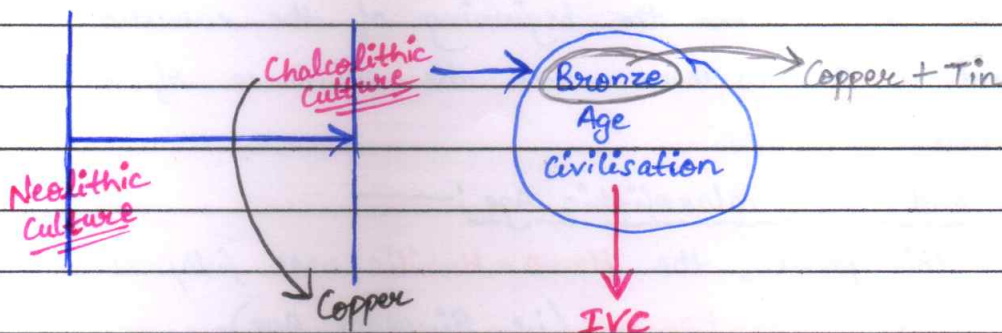 Chalcolithic
Culture
Bronze
Age
Civilisation
Copper + Tin
Neolithic
Culture
Copper
IVC